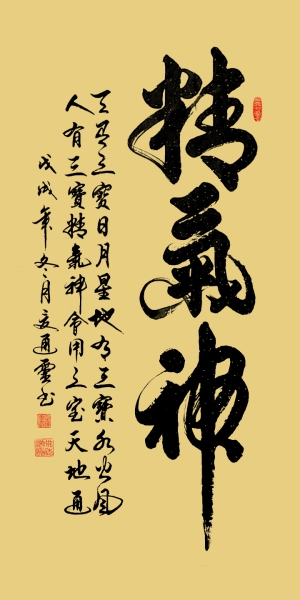 精氣神
天有三寶日月星地有三寶水火風
人有三寶精氣神會用三寶天地通
戊戌年冬月友通雲书